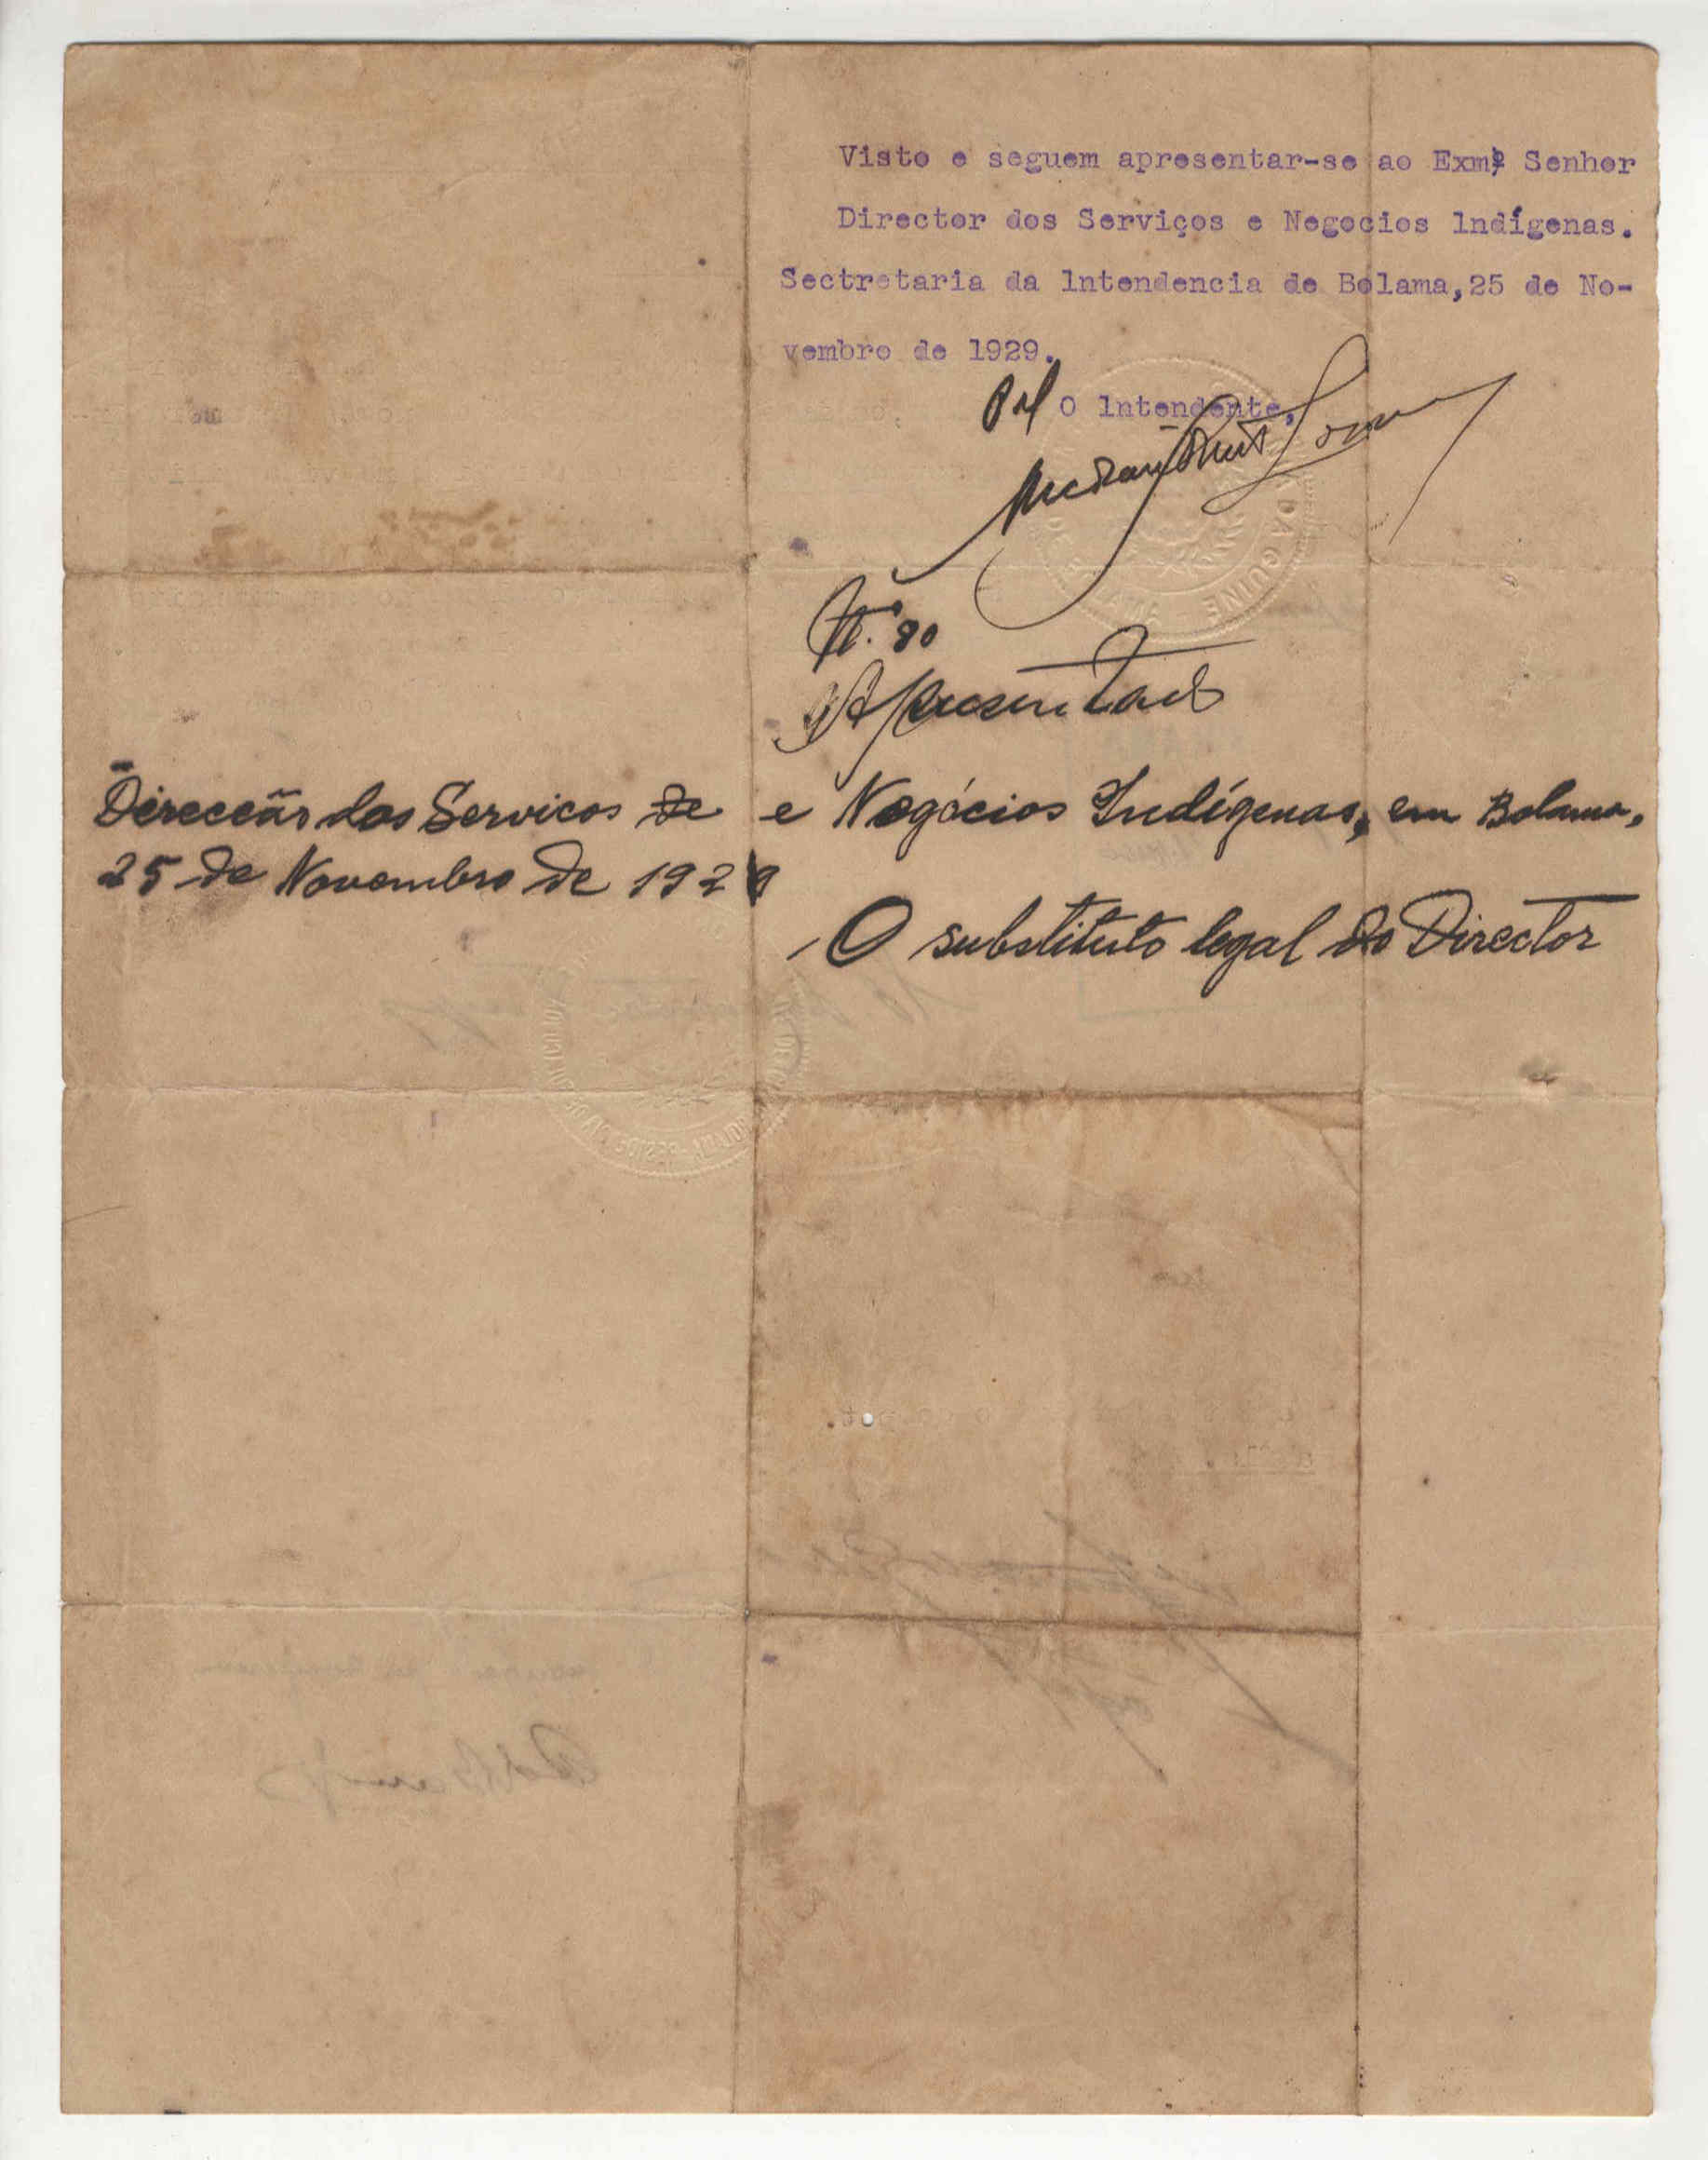 Visto e seguem apresentar-se ao Exmº Senhor
Director dos Serviços e Negocios lndígenas.
Sectretaria da lntendencia de Bolama,25 de No-
vembro de 1929.
Pel O lntendente,
Nº 90
Apresentado
Direcção dos Serviços de e Negócios Indígenas, em Bolama,
25 de Novembro de 1929
O substituto legal do Director
DA GUINÉ